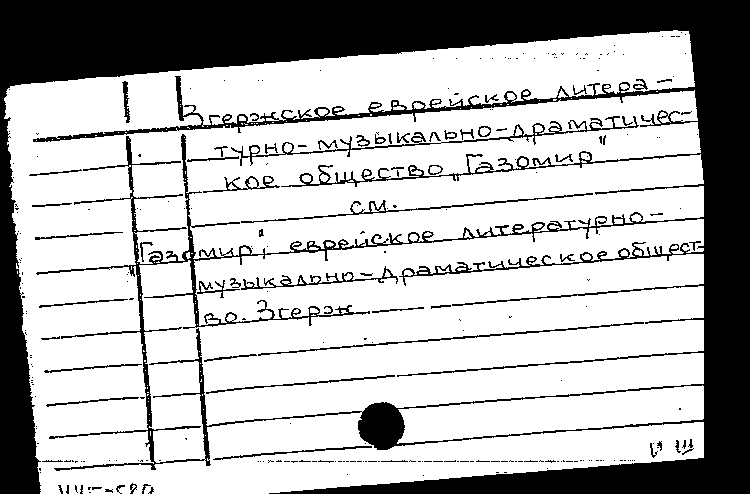 Згержское еврейское литера-
турно-музыкально-драматичес-
кое общество „Газомир"
см.
„Газомир", еврейское литературно-
музыкально-драматическое общест-
во. Згерж